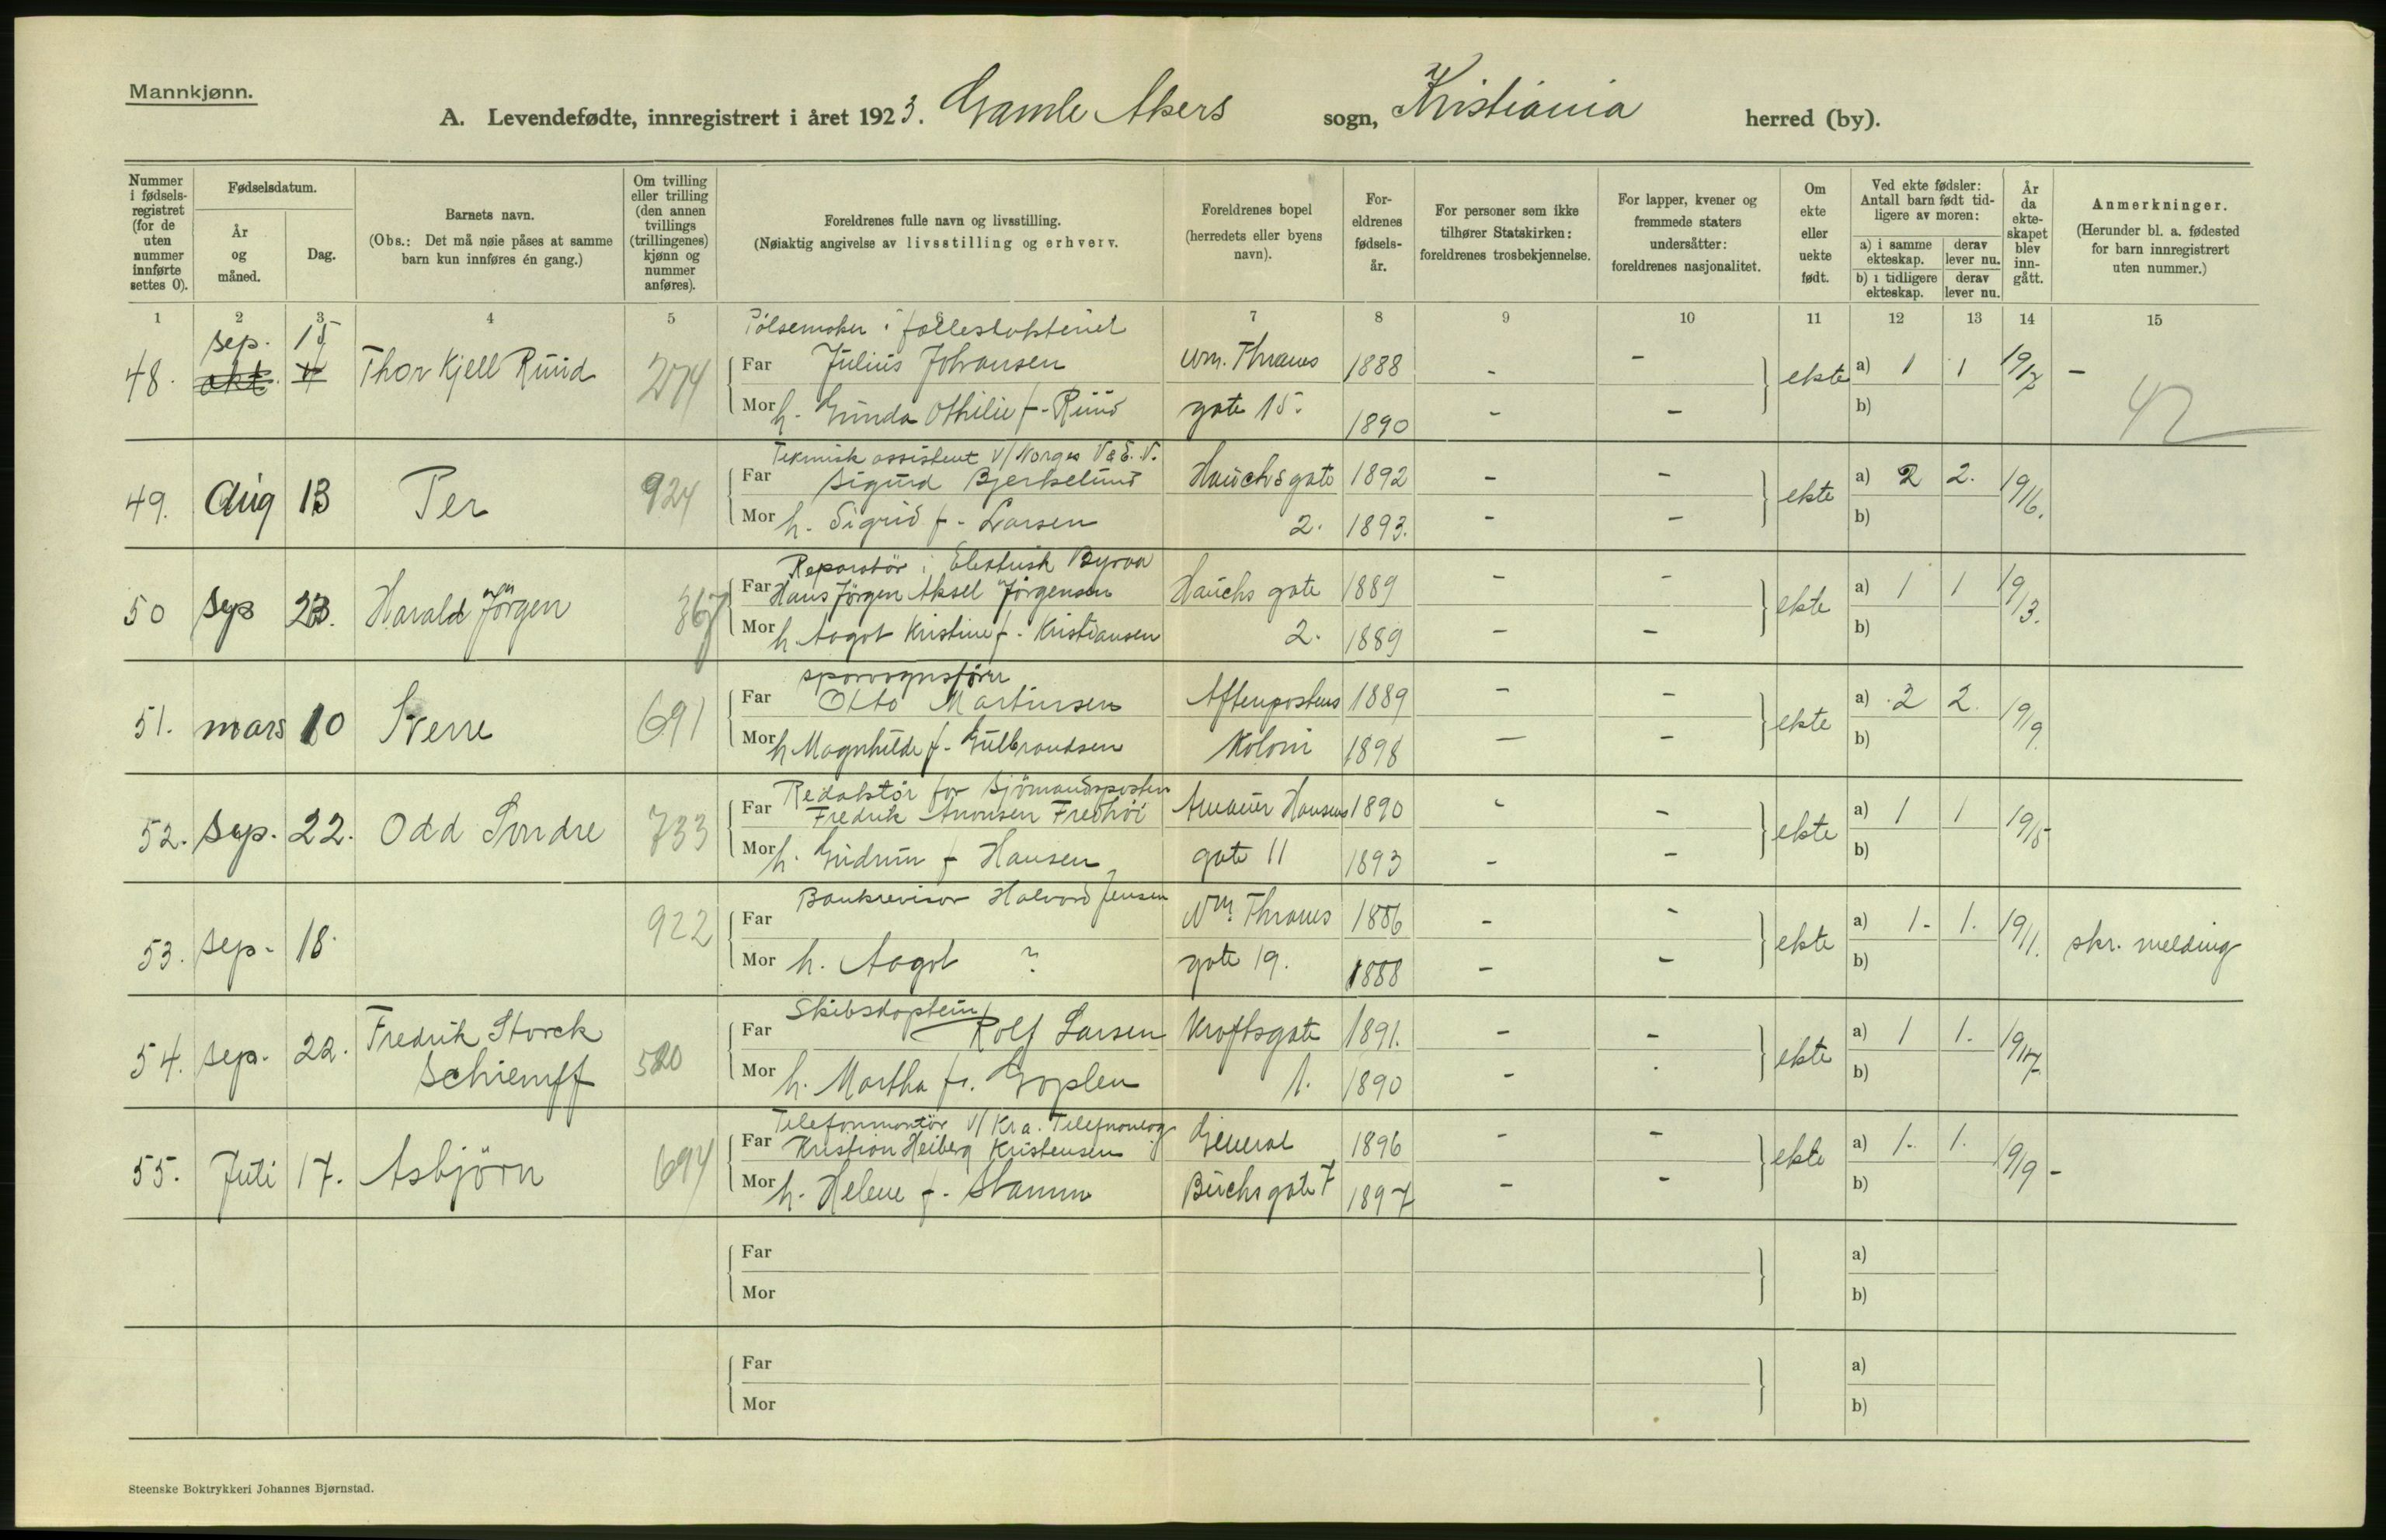 Mannkjønn.
A. Levendefødte, innregistrert i året 1923. Gamle Akers sogn, Kristiania herred (by).
Nummer i fødselsregistret (for de uten nummer innførte settes 0).
Fødselsdatum.
År og måned.
Dag.
Barnets navn.
(Obs.: Det må nøie påses at samme barn kun innføres én gang.)
Om tvilling eller trilling (den annen tvillings (trillingenes) kjønn og nummer anføres).
Foreldrenes fulle navn og livsstilling.
(Nøiaktig angivelse av livsstilling og erhverv.
Foreldrenes bopel (herredets eller byens navn).
Foreldrenes fødselsår.
For personer som ikke tilhører Statskirken: foreldrenes trosbekjennelse.
For lapper, kvener og fremmede staters undersåtter: foreldrenes nasjonalitet.
Om ekte eller uekte født.
Ved ekte fødsler: Antall barn født tidligere av moren:
a) i samme ekteskap. derav lever nu.
b) i tidligere ekteskap. derav lever nu.
År da ekteskapet blev inngått.
Anmerkninger.
(Herunder bl. a. fødested for barn innregistrert uten nummer.)
1 2 3 4 5 6 7 8 9 10 11 12 13 14 15
Pølsemaker i
sep. 15
48. okt. Thor Kjell Ruud 274 Far Julius Johansen Wm. Thranes 1888 - - ekte a) 1 1 19/17 -
Mor h. Gunda Othilie f. Ruud gate 15. 1890 - - b) 42
Teknisk assistent v/ Norges V & E. V.
49. Aug 13 Per 924 Far Sigurd Bjerkelund Hauchsgate 1892 - - ekte a) 2 2. 19/16.
Mor h. Sigrid f. Larsen 2. 1893. - - b)
Reparatör i Elektrisk Byraa
50 Sep 23. Harald Jörgen 367 Far Hans Jörgen Aksel Jörgensen Hauchs gate 1889 - - ekte a) 1 1 19/13.
Mor h. Aagot Kristine f. Kristiansen 2. 1889 - - b)
sporvognsförer
51. mars 10 Sverre 691 Far Otto Martinsen Aftenpostens 1889 - - ekte a) 2 2. 19/9.
Mor h. Magnhilde f. Gulbrandsen Koloni 1898 - - b)
Redaktör for Sjömandsposten
52. Sep. 22. Odd Sondre 733 Far Fredrik Fredhöi Hansens 1890 - - ekte a) 1 1 19/15
Mor h. Gudrun f. Hansen gate 11 1893 - - b)
Bankrevisor Halvord Jensen
53. sep. 18. 922 Far Wm. Thranes 1886 - - ekte a) 1. 1. 19/11. skr. melding
Mor h. Aagot ? gate 19. 1888 - - b)
Skibskaptein
54. sep. 22. Fredrik Storck 520 Far Rolf Larsen Kroftsgate 1891. - - ekte a) 1 1. 19/17.
Mor h. Martha f. Goplen 1. 1890 - . b)
Telefonmontör v/ Kra. Telefonanlæg
55. Juli 17. Asbjörn 694 Far Kristian Heiberg Kristensen General 1896 - - ekte a) 1. 1. 19/19 -
Mor h. Helene f. Stamm Birchsgate 7 1897 - - b)
Far a)
Mor b)
Far a)
Mor b)
Steenske Boktrykkeri Johannes Bjørnstad.